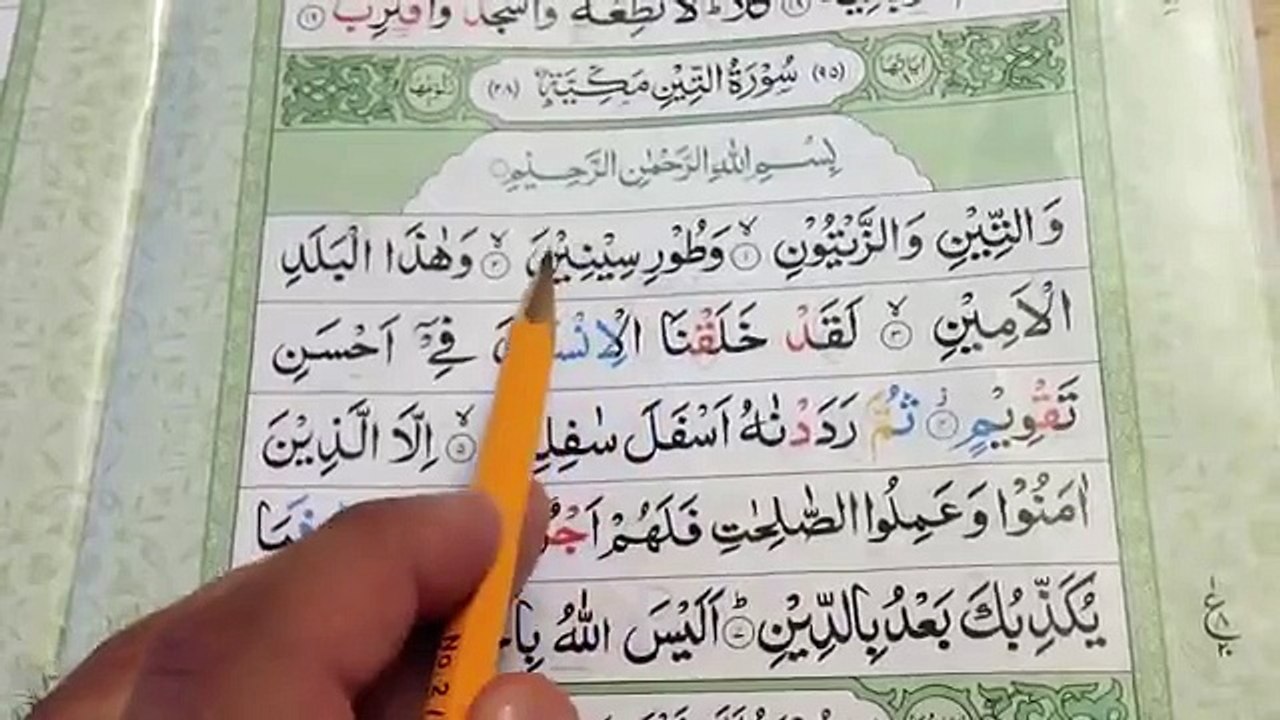 لَا تُطِعْهُ وَاسْجُدْ وَاقْتَرِبْ ۝١٩
اٰيَاتُهَا ٨ (٩٥) سُوْرَةُ التِّيْنِ مَكِّيَّةٌ (٢٨) رُكُوْعُهَا
بِسْمِ اللّٰهِ الرَّحْمٰنِ الرَّحِيْمِ
وَالتِّيْنِ وَالزَّيْتُوْنِ ۝١ۙ وَطُوْرِ سِيْنِيْنَ ۝٢ۙ وَهٰذَا الْبَلَدِ
الْاَمِيْنِ ۝٣ۙ لَقَدْ خَلَقْنَا الْاِنْسَانَ فِيْٓ اَحْسَنِ
تَقْوِيْمٍ ۝٤ۡ ثُمَّ رَدَدْنٰهُ اَسْفَلَ سٰفِلِ ۝٥ۙ اِلَّا الَّذِيْنَ
اٰمَنُوْا وَعَمِلُوا الصّٰلِحٰتِ فَلَهُمْ اَجْرٌ فَمَا
يُكَذِّبُكَ بَعْدُ بِالدِّيْنِ ۝٧ؕ اَلَيْسَ اللّٰهُ
ع
٨
٢٠